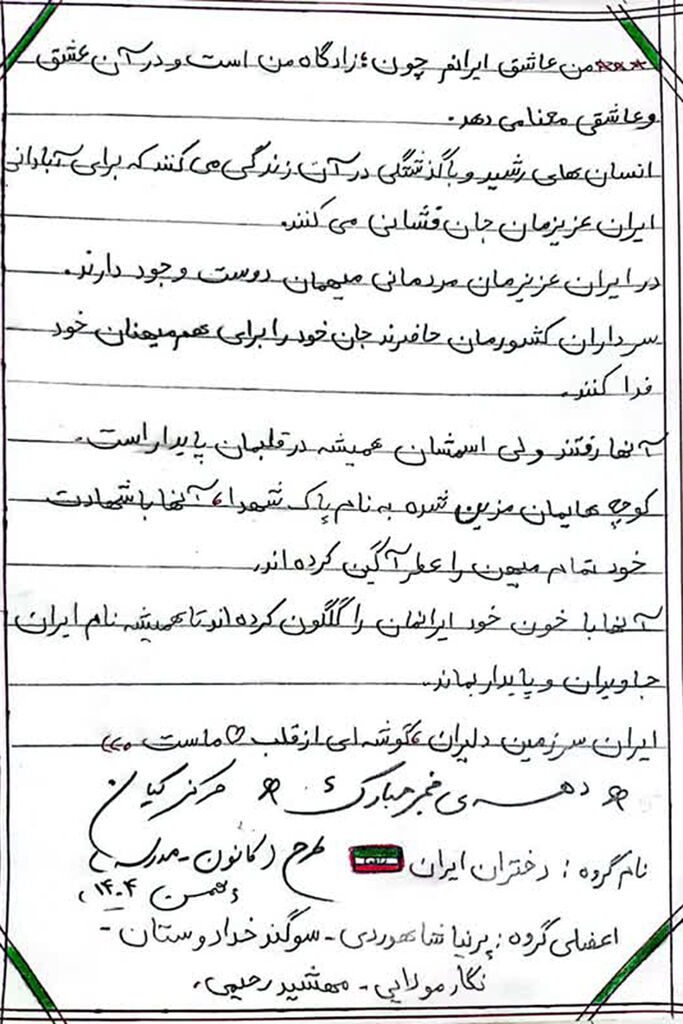 *** من عاشق ایرانم چون؛ زادگاه من است و در آن عشق
و عاشقی معنا می دهد.
انسان های رشید و باگذشتگی در آن زندگی می کنند که برای آبادانی
ایران عزیزمان جان فشانی می کنند.
در ایران عزیزمان مردمانی میهمان دوست وجود دارند.
سرداران کشورمان حاضرند جان خود را برای هم میهنان خود
فدا کنند.
آنها رفتند ولی اسمشان همیشه در قلبمان پایدار است.
کوچه هایمان مزین شده به نام پاک شهدا، آنها با شهادت
خود تمام میهن را عطرآگین کرده اند.
آنها با خون خود ایرانمان را گلگون کرده اند تا همیشه نام ایران
جاویدان و پایدار بماند.
ایران سرزمین دلیران، گوشه ای از قلب ♡ ماست
دهه ی فجر مبارک مرکز کیان
نام گروه: دختران ایران طرح (کانون - مدرسه)
بهمن ۱۴۰۴
اعضای گروه: پرنیا شاهوردی - سوگند خدادوستان -
نگار مولایی - مهشید رحیمی.